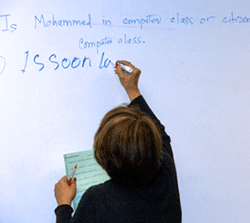 Is Mohammed in computer class or citizen
Computer class.
Is soon la